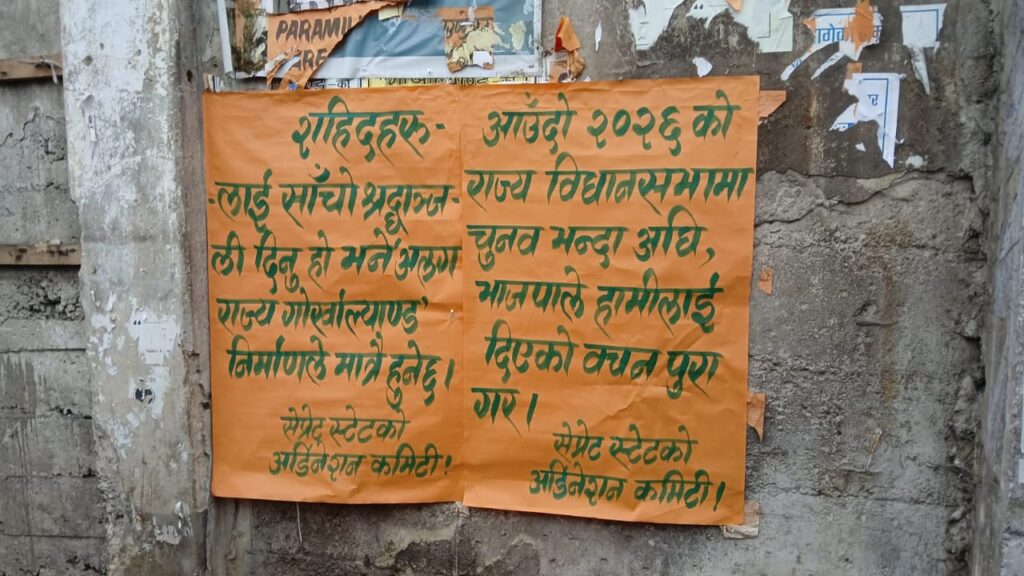 PARAMIL
शहिदहरू-
-लाई साँचो श्रद्धाञ्ज-
ली दिनु हो भने 'अलग
राज्य गोर्खाल्याण्ड'
निर्माणले मात्रै हुनेछ।
सेप्रेट स्टेटको
अर्डिनेशन कमिटी!
आउँदो २०२६ को
राज्य विधानसभामा
चुनव भन्दा अघि,
भाजपाले हामीलाई
दिएको वचन पुरा
गर।
सेप्रेट स्टेटको
अर्डिनेशन कमिटी।